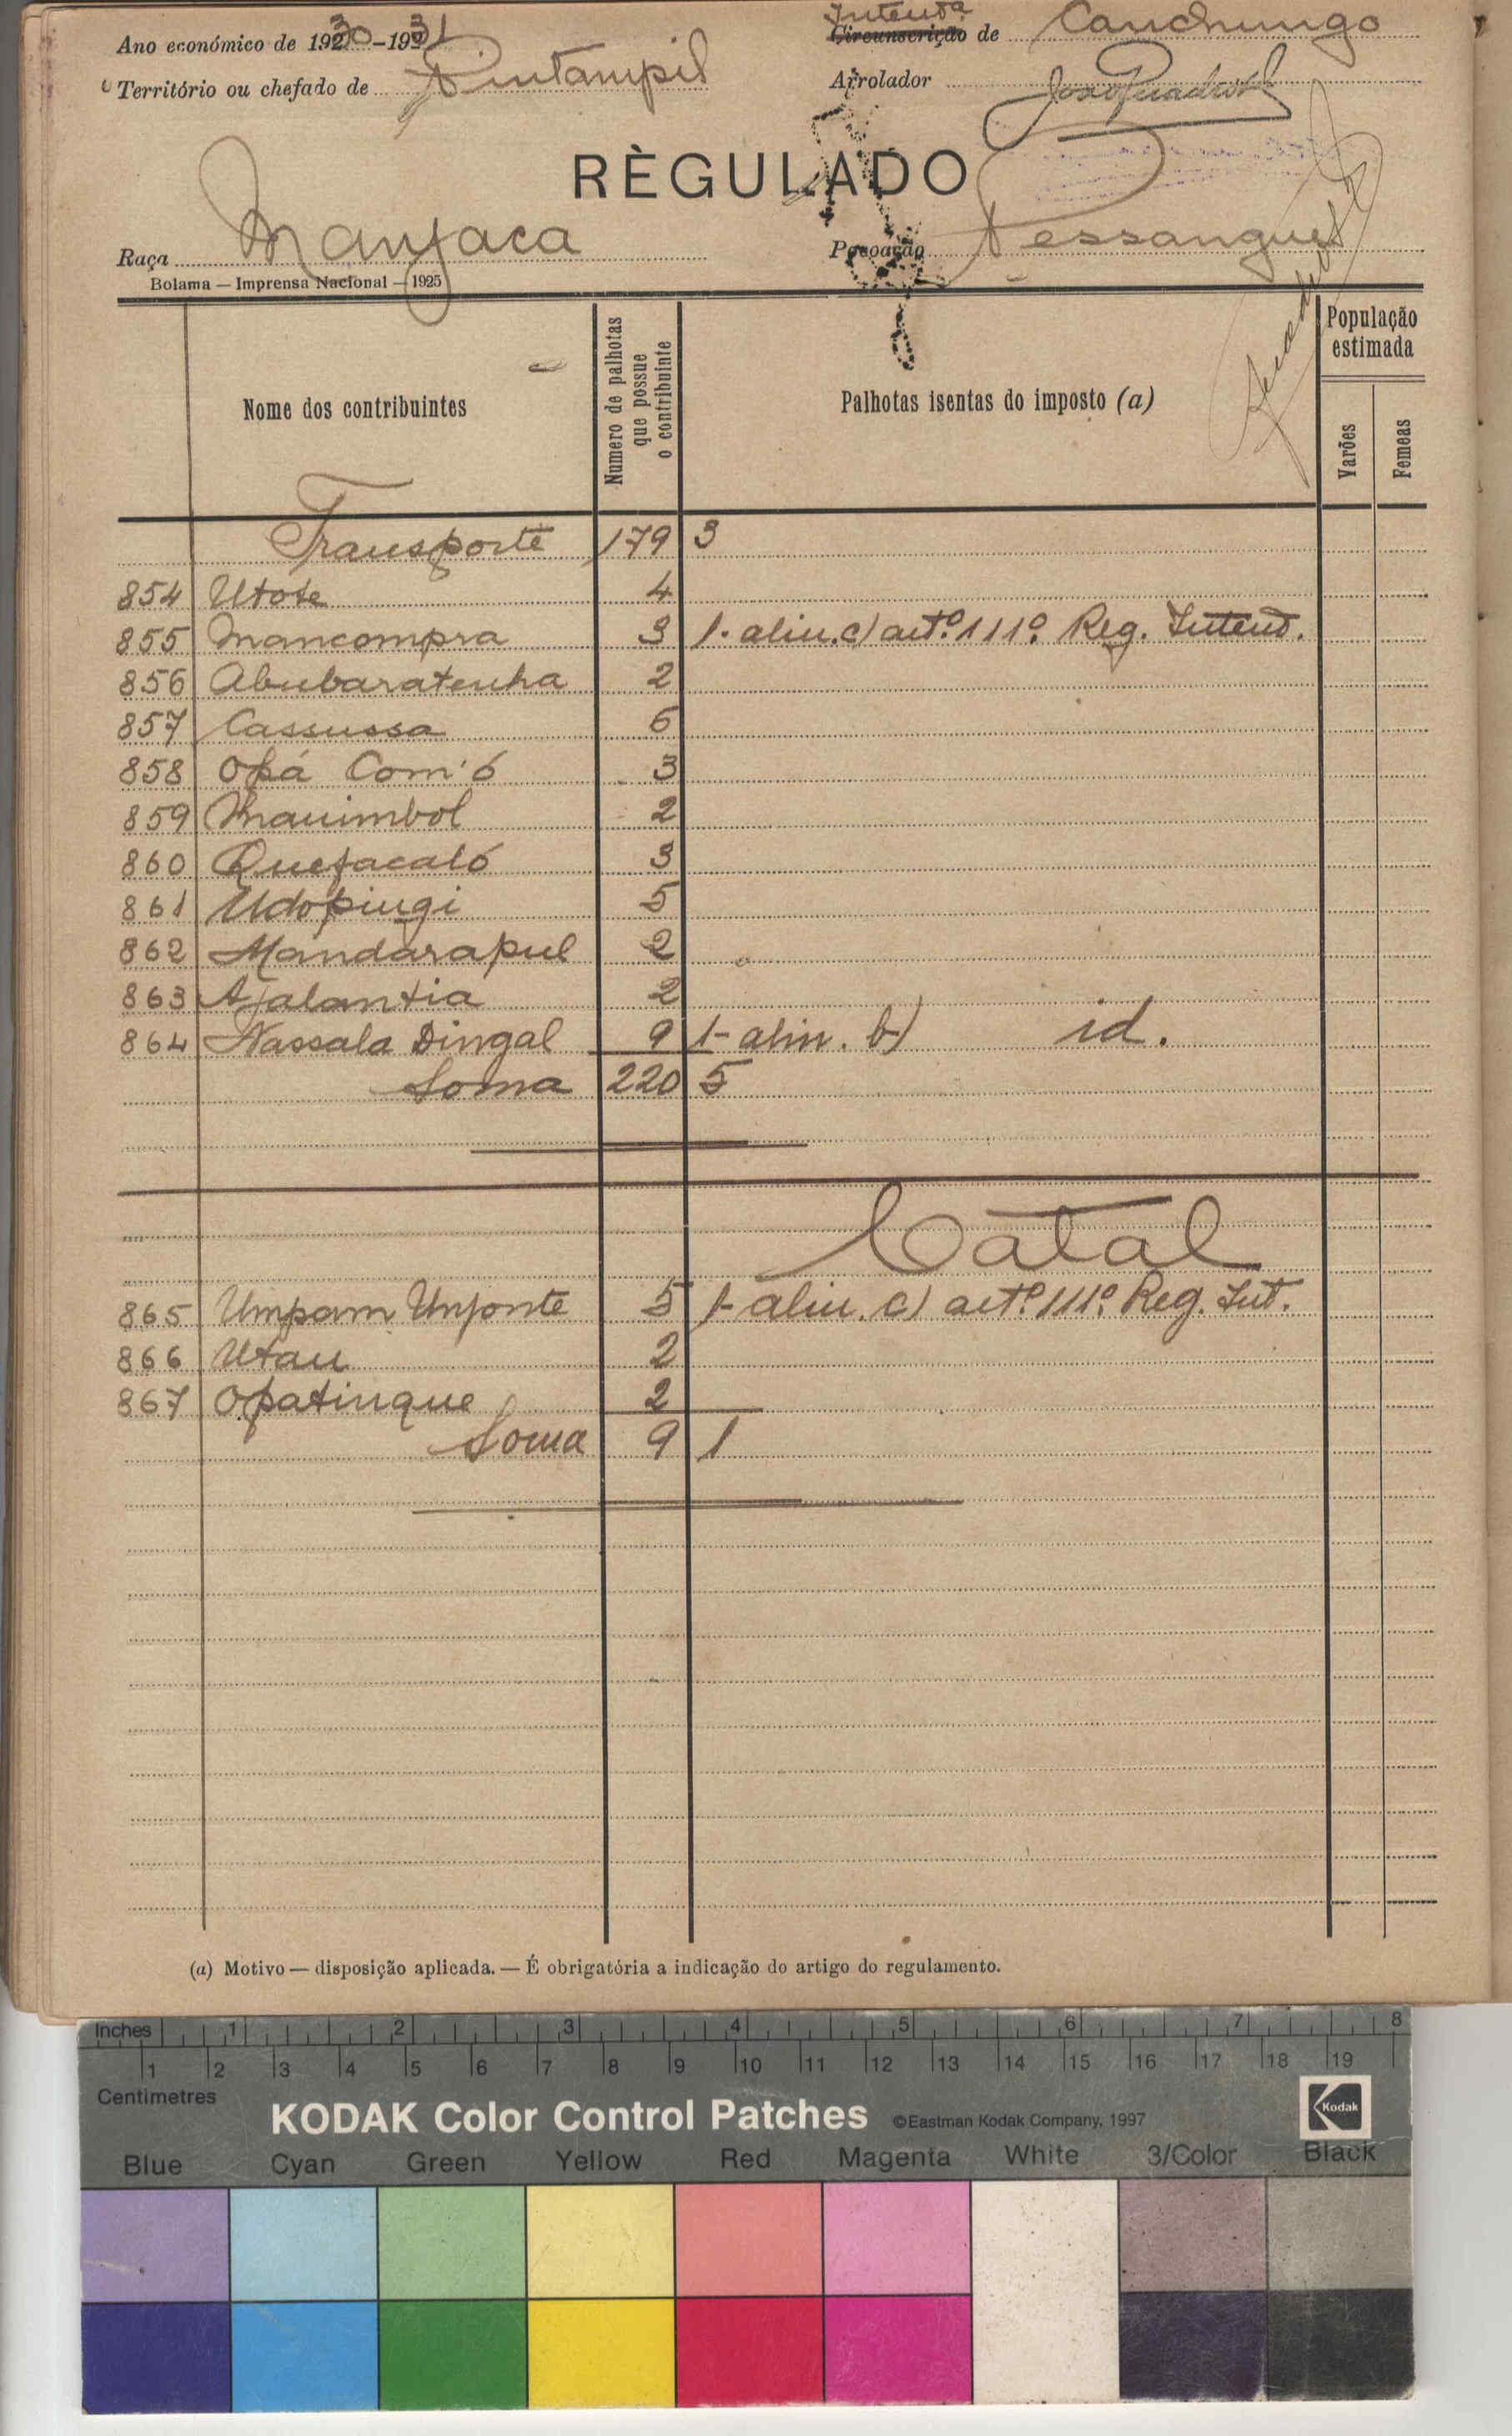 Ano económico de 1930-1931
Intendª
Circunscrição de Canchungo
Território ou chefado de Pintampil
Arrolador
RÈGULADO
Raça Manjaca
Povoação Pessangue
Bolama — Imprensa Nacional — 1925
Nome dos contribuintes
Numero de palhotas que possue o contribuinte
Palhotas isentas do imposto (a)
População estimada
Varões
Femeas
Transporte 179 3
854 Utote 4
855 Mancompra 3 1- alin. c) artº 111º Reg. Intend.
856 Abubaratenha 2
857 Cassussa 6
858 Opá Com'ó 3
859 Mauimbol 2
860 Quefacaló 3
861 Udopingi 5
862 Mandarapul 2
863 Ajalantia 2
864 Nassala Dingal 9 1- alin. b) id.
Soma 220 5
Catal
865 Umpam Unjonte 5 1- alin. c) artº 111º Reg. Int.
866 Utau 2
867 Opatinque 2
Soma 9 1
(a) Motivo — disposição aplicada. — É obrigatória a indicação do artigo do regulamento.
Inches 1 2 3 4 5 6 7 8
1 2 3 4 5 6 7 8 9 10 11 12 13 14 15 16 17 18 19
Centimetres
KODAK Color Control Patches ©Eastman Kodak Company, 1997 Kodak
Blue Cyan Green Yellow Red Magenta White 3/Color Black